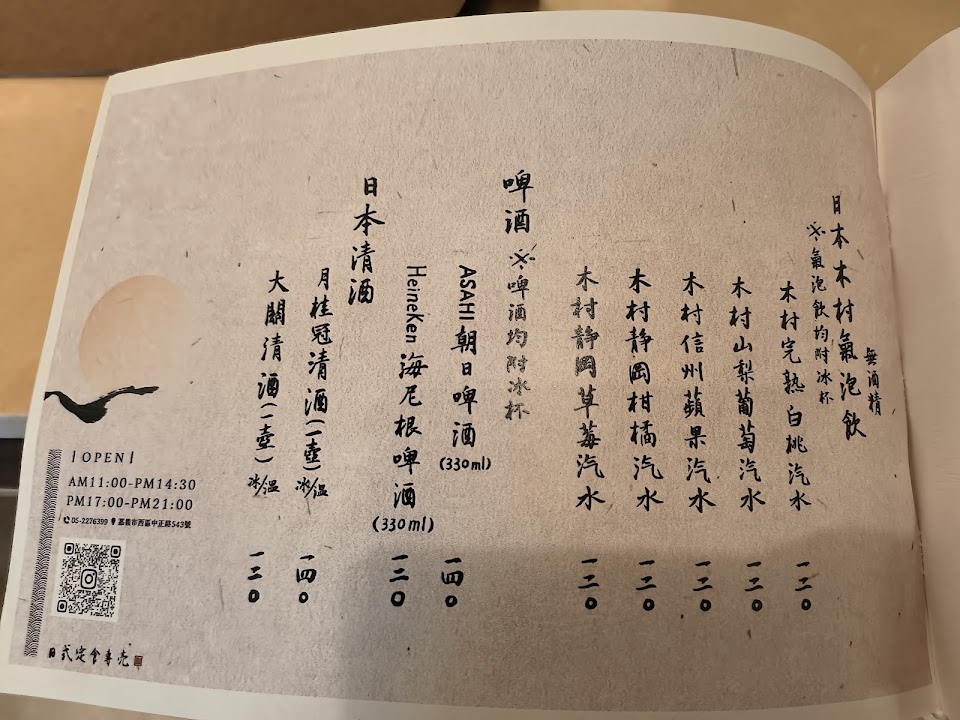 無酒精
日本木村氣泡飲
※氣泡飲均附冰杯
木村完熟白桃汽水 一二0
木村山梨葡萄汽水 一二0
木村信州蘋果汽水 一二0
木村靜岡柑橘汽水 一二0
木村靜岡草莓汽水 一二0
啤酒 ※啤酒均附冰杯
ASAHI 朝日啤酒 (330ml) 一四0
Heineken 海尼根啤酒 (330ml) 一三0
日本清酒
月桂冠清酒(一壺)冰/溫 一四0
大關清酒(一壺)冰/溫 一二0
| OPEN |
AM11:00-PM14:30
PM17:00-PM21:00
05-2276399 嘉義市西區中正路543號
日式定食專売